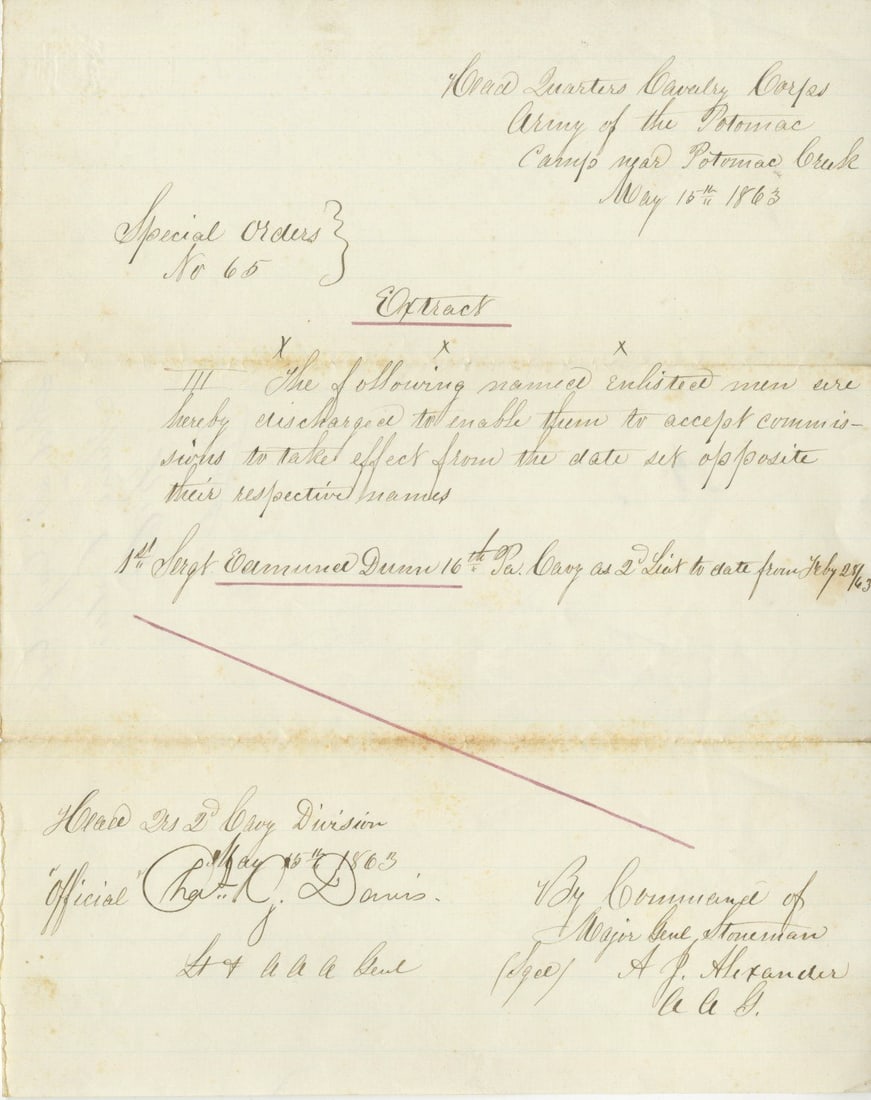 Head Quarters Cavalry Corps
Army of the Potomac
Camp near Potomac Creek
May 15th 1863
Special Orders }
No 65
Extract
X X X
III The following named Enlisted men are
hereby discharged to enable them to accept commis-
sions to take effect from the date set opposite
their respective names
1st Sergt. Edmund Dunn 16th Pa. Cavy as 2d Lieut to date from Feby 28/63
Head Qrs 2d Cavy Division
May 15th 1863
"Official" Chas. C. J. Davis.
Lt & A A A Genl
By Command of
Major Genl Stoneman
(Sgd) A J. Alexander
A A G.